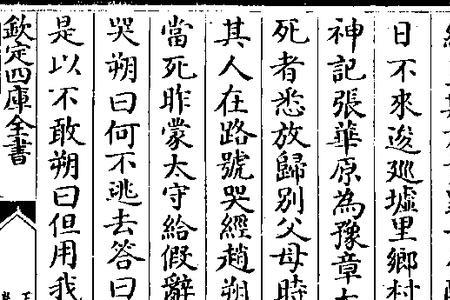 日不來逡廵墟里鄉村
神記張華原為豫章太
死者悉放歸别父母時
其人在路號哭經趙朔
當死昨蒙太守給假辭
哭朔曰何不逃去答曰
是以不敢朔曰但用我
欽定四庫全書